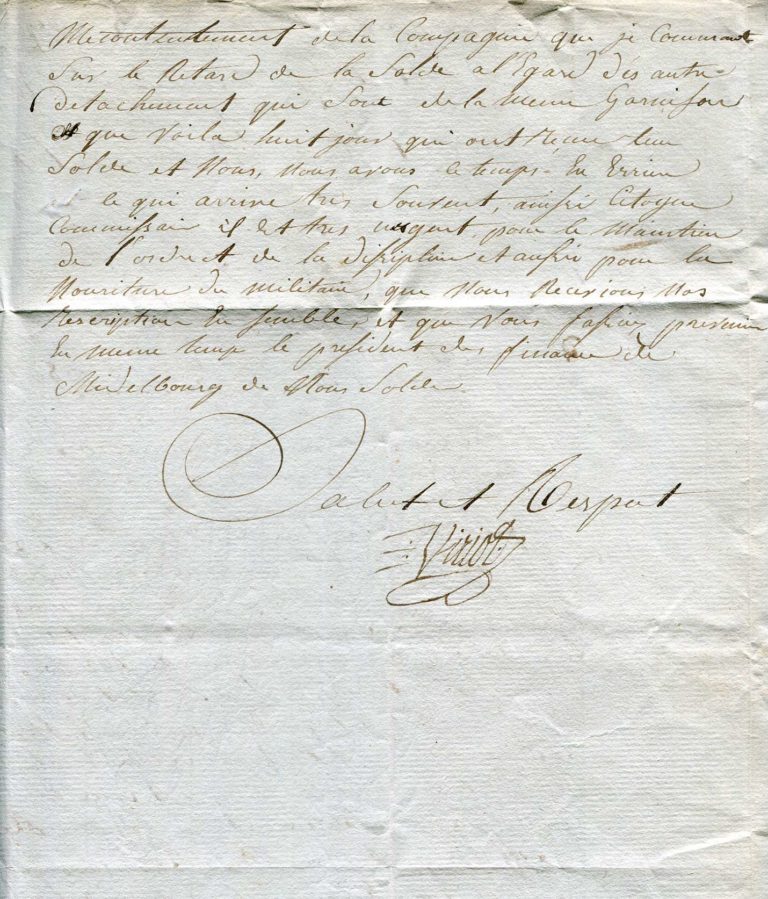 Mecontentement de la Compagnie que je Commant
Sur le Retard de la Solde a l'Egard des autre
detachement qui sont de la meme Garnison
et que voila huit jour qui ont Recue leur
Solde et Nous, nous avons le temps En Errier
ce qui arrive tres souvent, ainsi Citoyen
Commissair il Est tres urgent pour le Maintien
de l'ordre et de la disipline et aussi pour la
Nouriture du militair, que Nous Recevions Nos
Rescription En semble, et que vous fasiez prevenir
En meme temps le president des finance de
Midelbourg de Nous Solder
Salut et Respect
Viriot